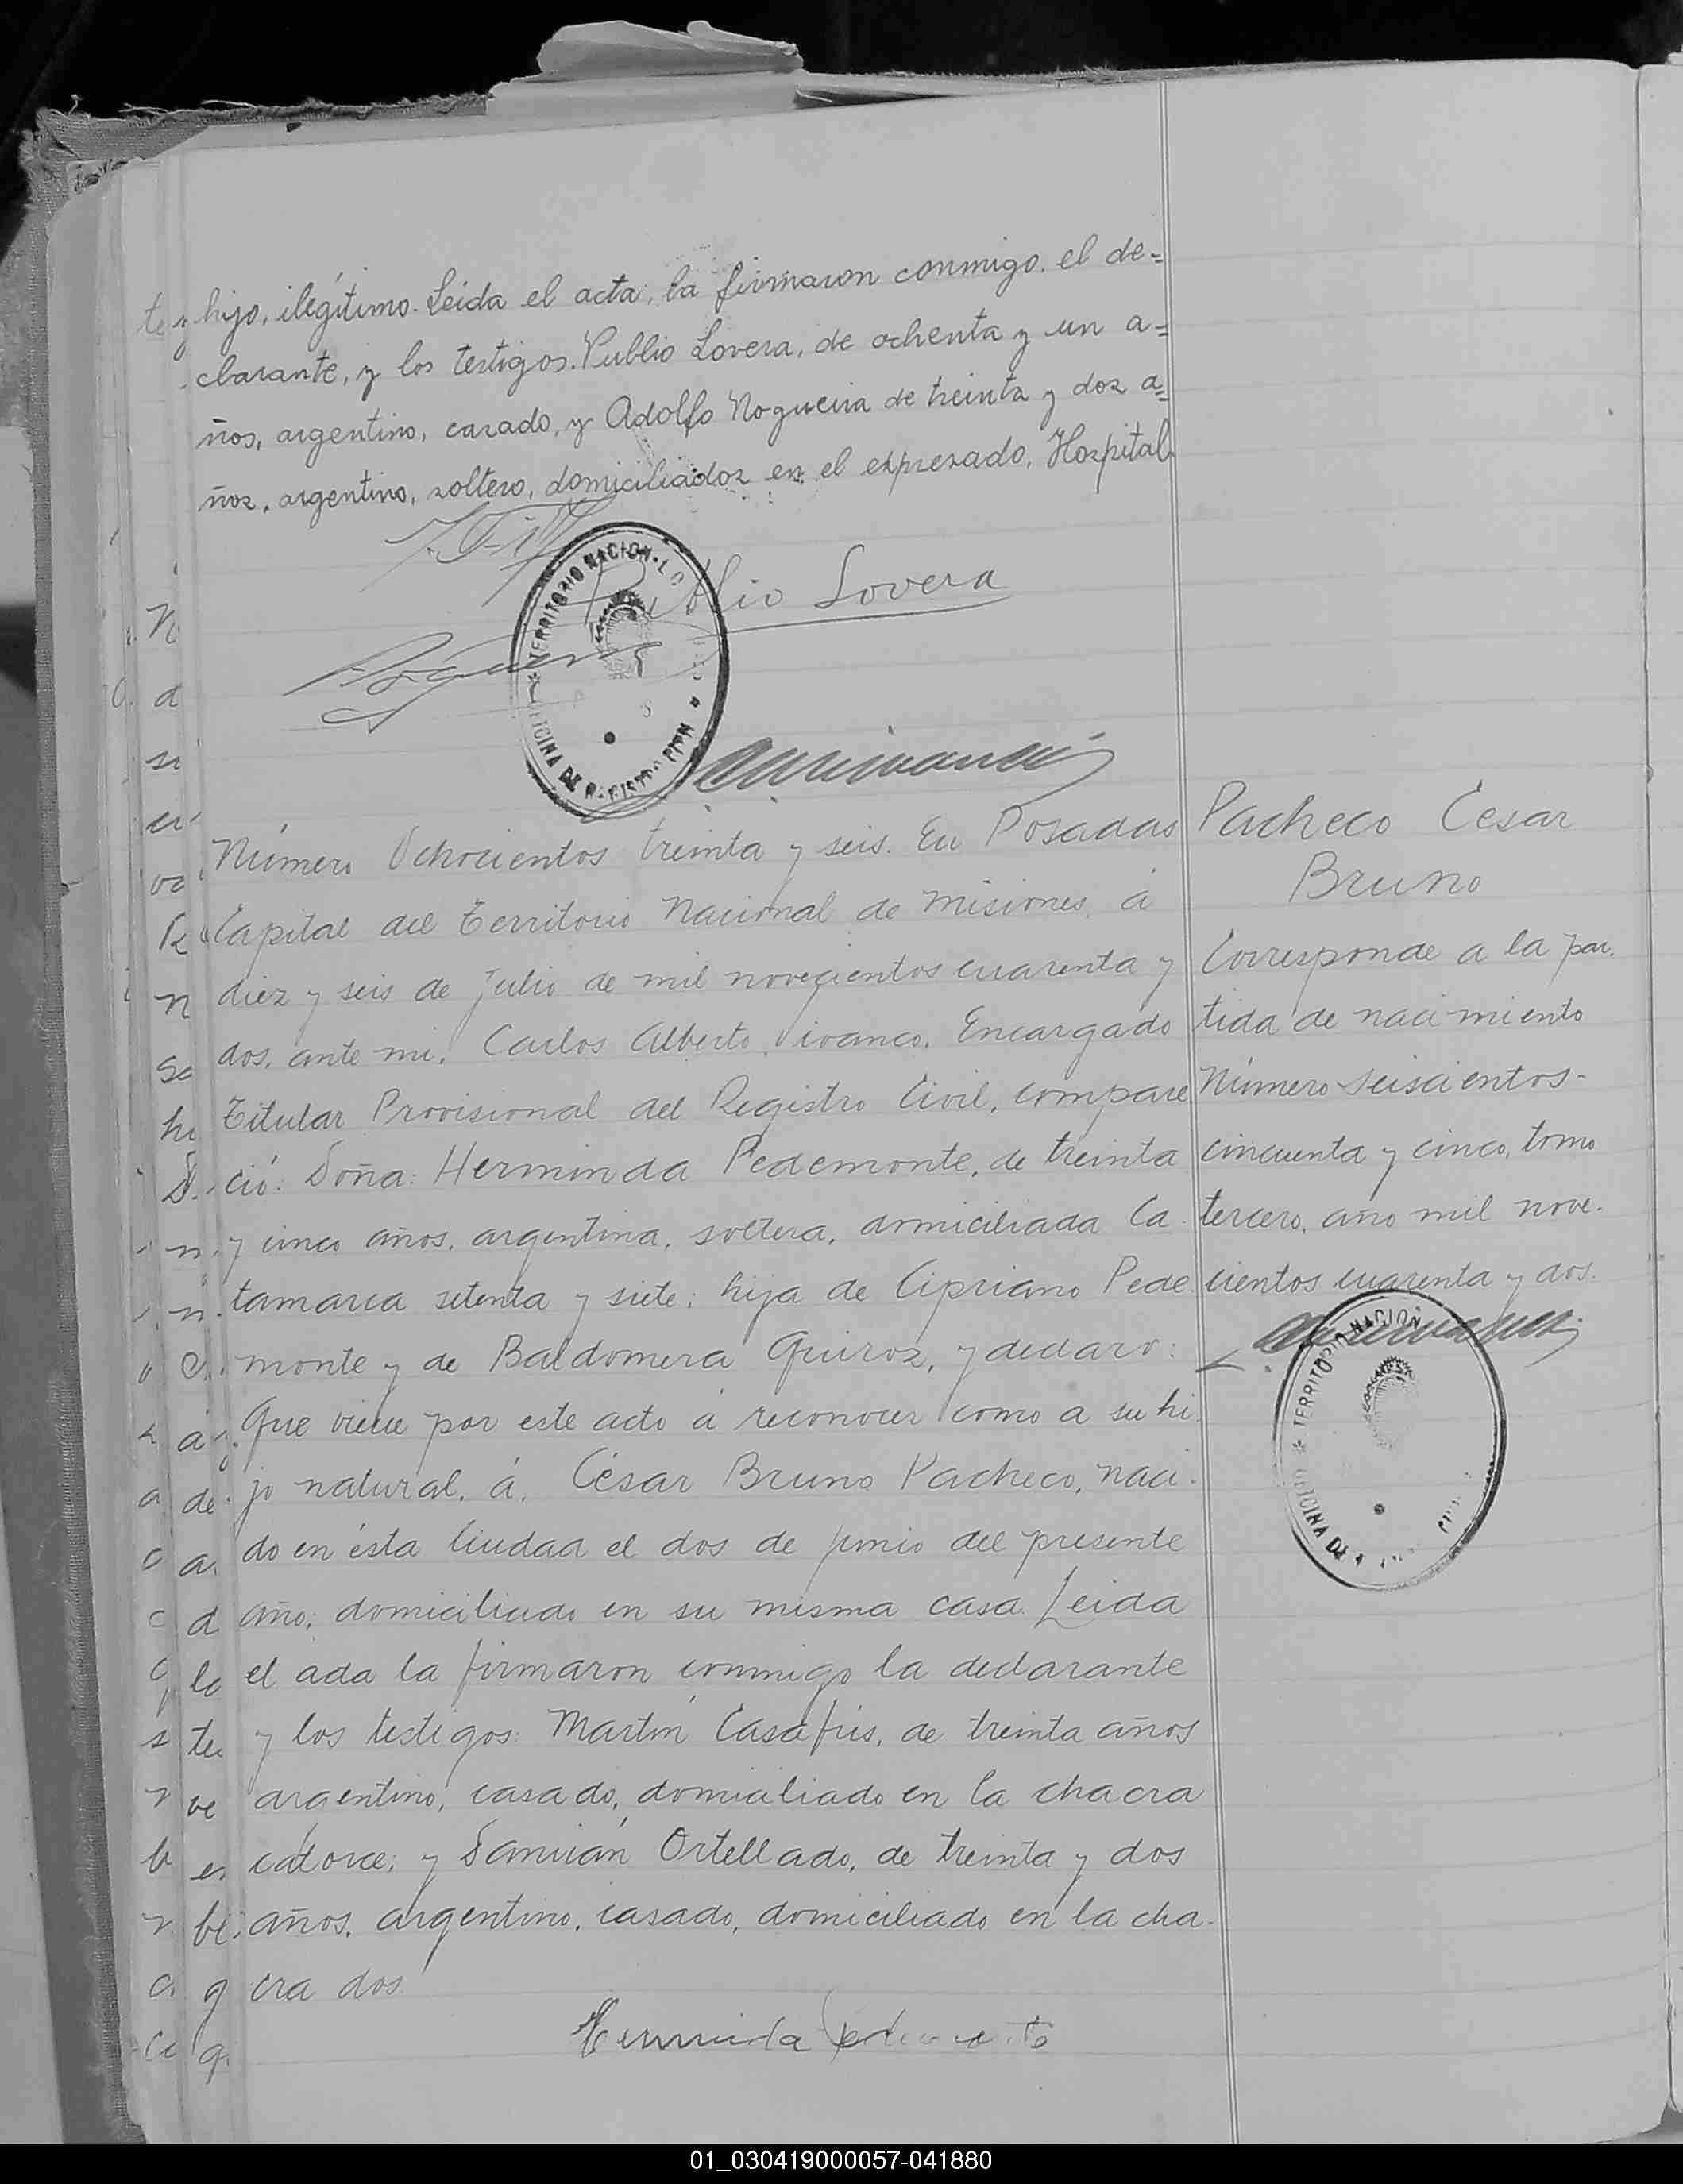 hijo, ilegítimo. Leida el acta, la firmaron conmigo. el de=
clarante, y los testigos. Publio Lovera, de ochenta y un a=
ños, argentino, casado, y Adolfo Nogueira de treinta y dos a=
ños, argentino, soltero, domiciliados en el expresado, Hospital.
Publio Lovera
TERRITORIO NACION
OFICINA DE REGISTRO
Número Ochocientos treinta y seis. En Posadas
Capital del Territorio Nacional de Misiones, á
diez y seis de Julio de mil novecientos cuarenta y
dos, ante mi, Carlos Alberto Vivanco, Encargado
Titular Provisional del Registro Civil, compare
ció: Doña: Herminda Pedemonte, de treinta
y cinco años, argentina, soltera, domiciliada Ca
tamarca setenta y siete; hija de Cipriano Pede
monte y de Baldomera Quiroz, y declaro:
Que viene por este acto á reconocer como a su hi
jo natural, á, César Bruno Pacheco, naci-
do en ésta Ciudad el dos de junio del presente
año, domiciliado en su misma casa. Leida
el acta la firmaron conmigo la declarante
y los testigos: Martín Casafús, de treinta años
argentino, casado, domiciliado en la chacra
catorce; y Damián Ortellado, de treinta y dos
años, argentino, casado, domiciliado en la cha-
cra dos
Herminda Pedemonte
Pacheco Cesar
Bruno
Corresponde a la par.
tida de nacimiento
Número seiscientos-
cincuenta y cinco, tomo
tercero, año mil nove.
cientos cuarenta y dos.
TERRITORIO NACION
OFICINA DE
01_030419000057-041880